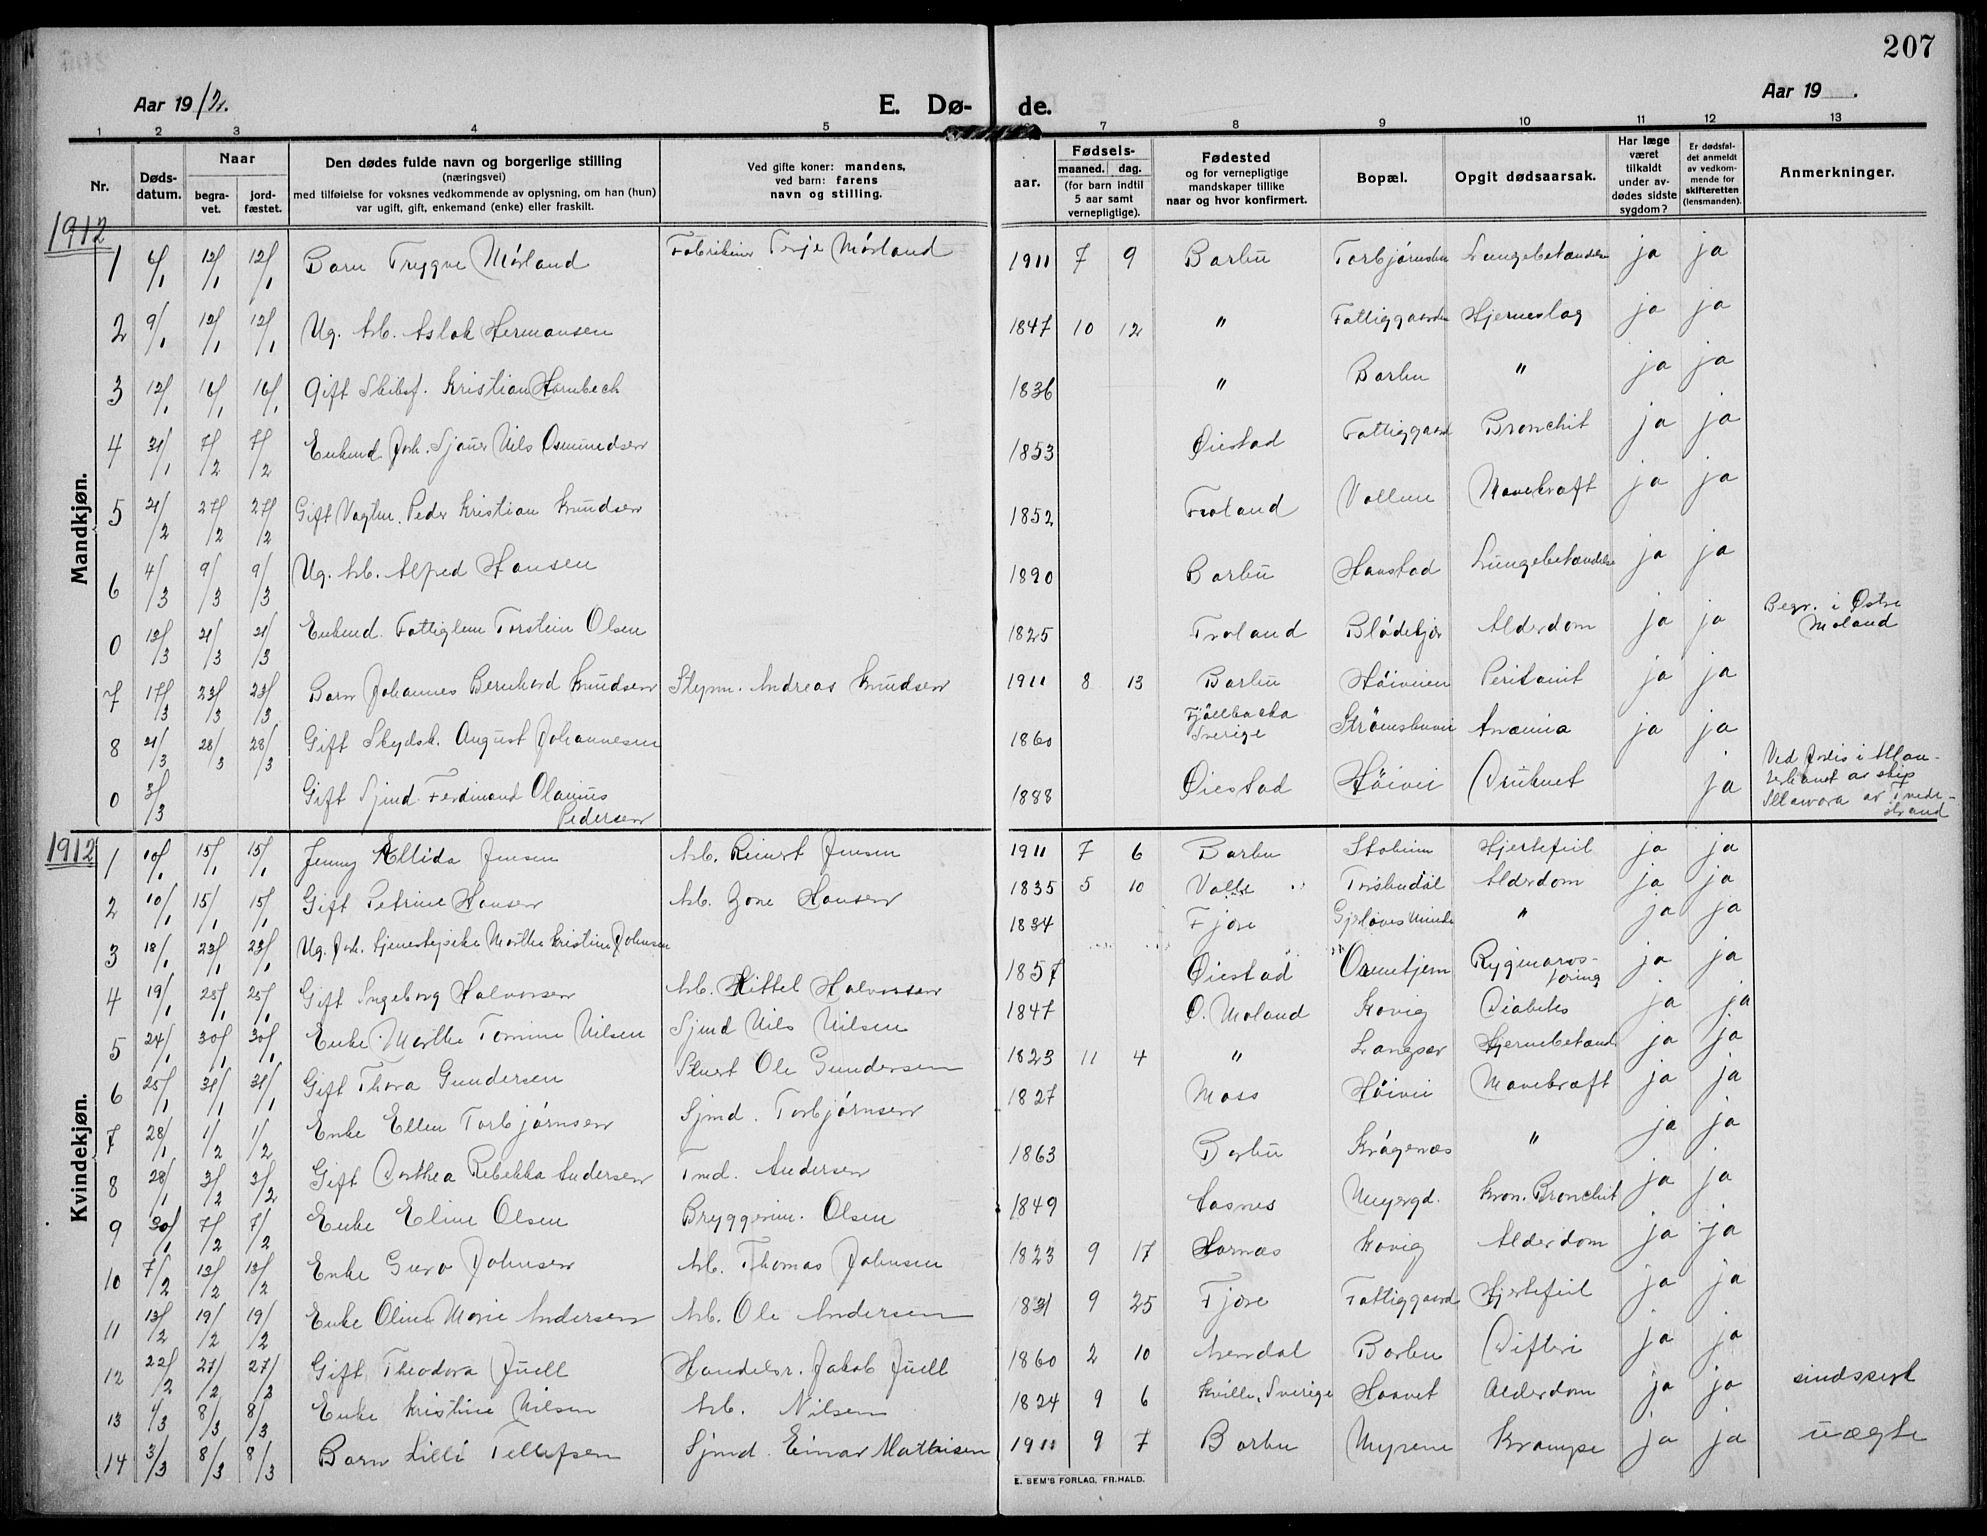 207
Aar 1912. E. Dø- de. Aar 19 .
1 2 3 4 5 7 8 9 10 11 12 13
Nr. Døds-datum. Naar begra-vet. jord-fæstet. Den dødes fulde navn og borgerlige stilling (næringsvei) med tilføielse for voksnes vedkommende av oplysning, om han (hun) var ugift, gift, enkemand (enke) eller fraskilt. Ved gifte koner: mandens, ved barn: farens navn og stilling. aar. Fødsels- maaned. dag. (for barn indtil 5 aar samt vernepligtige). Fødested og for vernepligtige mandskaper tillike naar og hvor konfirmert. Bopæl. Opgit dødsaarsak. Har læge været tilkaldt under av-dødes sidste sygdom? Er dødsfal-det anmeldt av vedkom-mende for skifteretten (lensmanden). Anmerkninger.
Mandkjøn.
1912
1 6/1 12/1 12/1 Barn Trygve Mørland Fabrikeier Terje Mørland 1911 7 9 Barbu Torbjørnsbu Lungebetændelse ja ja
2 9/1 12/1 12/1 Ug. Arb. Aslak Hermansen 1847 10 12 " Fattiggaarden Hjerneslag ja ja
3 12/1 16/1 16/1 Gift Skibsf. Kristian Hornbeck 1836 " Barbu " ja ja
4 31/1 7/2 7/2 Enkmd. Forh. Sjauer Nils Osmundsen 1853 Øiestad Fattiggaard Bronchit ja ja
5 21/2 27/2 27/2 Gift Vagtm. Peder Kristian Knudsen 1852 Froland Vollene Mavekræft ja ja
6 4/3 9/3 9/3 Ug. Arb. Alfred Hansen 1890 Barbu Havstad Lungebetændelse ja ja
0 12/3 21/3 21/3 Enkmd. Fattiglem Torstein Olsen 1825 Froland Blødekjær Alderdom ja ja Begr. i Østre Moland
7 17/3 23/3 23/3 Barn Johannes Bernhard Knudsen Styrm. Andreas Knudsen 1911 8 13 Barbu Høiveien Peritonit ja ja
8 21/3 28/3 28/3 Gift Skydsk. August Johannesen 1860 Fjällbacka Sverige Strømsbuvei Anæmia ja ja
0 3/3 Gift Sjmd. Ferdinand Olanius Pedersen 1888 Øiestad Høivei Druknet ja Ved forlis i Atlan-terhavet av skip av Tvede-strand
Kvindekjøn.
1912
1 10/1 15/1 15/1 Jenny Allida Jensen Arb. Reinert Jensen 1911 7 6 Barbu Stoheim Hjertefeil ja ja
2 10/1 15/1 15/1 Gift Petrine Hansen Arb. Hansen 1835 5 10 Valle Torsbudal Alderdom ja ja
3 18/1 23/1 23/1 Ug. Forh. tjenestepike Marthe Kristine Johnsen 1834 Fjære Gjerløves Minde " ja ja
4 19/1 25/1 25/1 Gift Ingeborg Halvorsen Arb. Kittel Halvorsen 1857 Øiestad Ormetjern Rygmarvs-tæring ja ja
5 24/1 30/1 30/1 Enke Marthe Tomine Nilsen Sjmd Nils Nilsen 1847 Ø. Moland Kovig Diabetes ja ja
6 25/1 31/1 31/1 Gift Thora Gundersen Stuert Ole Gundersen 1823 11 4 " Langsæ Hjernebetænd ja ja
7 28/1 1/2 1/2 Enke Ellen Torbjørnsen Sjmd. Torbjørnsen 1827 Moss Høivei Mavekræft ja ja
8 28/1 3/2 3/2 Gift Dorthea Rebekka Andersen Tmd. Andersen 1863 Barbu Krågenæs " ja ja
9 30/1 7/2 7/2 Enke Eline Olsen Bryggerim. Olsen 1849 Hasnes Myrergd. Kron. Bronchit ja ja
10 7/2 13/2 13/2 Enke Guro Johnsen Arb. Thomas Johnsen 1823 9 17 Hornæs Kovig Alderdom ja ja
11 13/2 19/2 19/2 Enke Oline Marie Andersen Arb. Ole Andersen 1831 9 25 Fjære Fattiggaard Hjertefeil ja ja
12 22/2 27/2 27/2 Gift Theodora Juell Handelsr. Jakob Juell 1860 2 10 Arendal Barbu Difteri ja ja
13 1/3 8/3 8/3 Enke Kristine Nilsen Arb. Nilsen 1824 9 6 Kville, Sverige Haavet Alderdom ja ja sindssyk
14 3/3 8/3 8/3 Barn Lilli Tellefsen Sjmd. Einar Mathisen 1911 9 7 Barbu Myrene Krampe ja ja uægte
E. SEM'S FORLAG, FR.HALD.